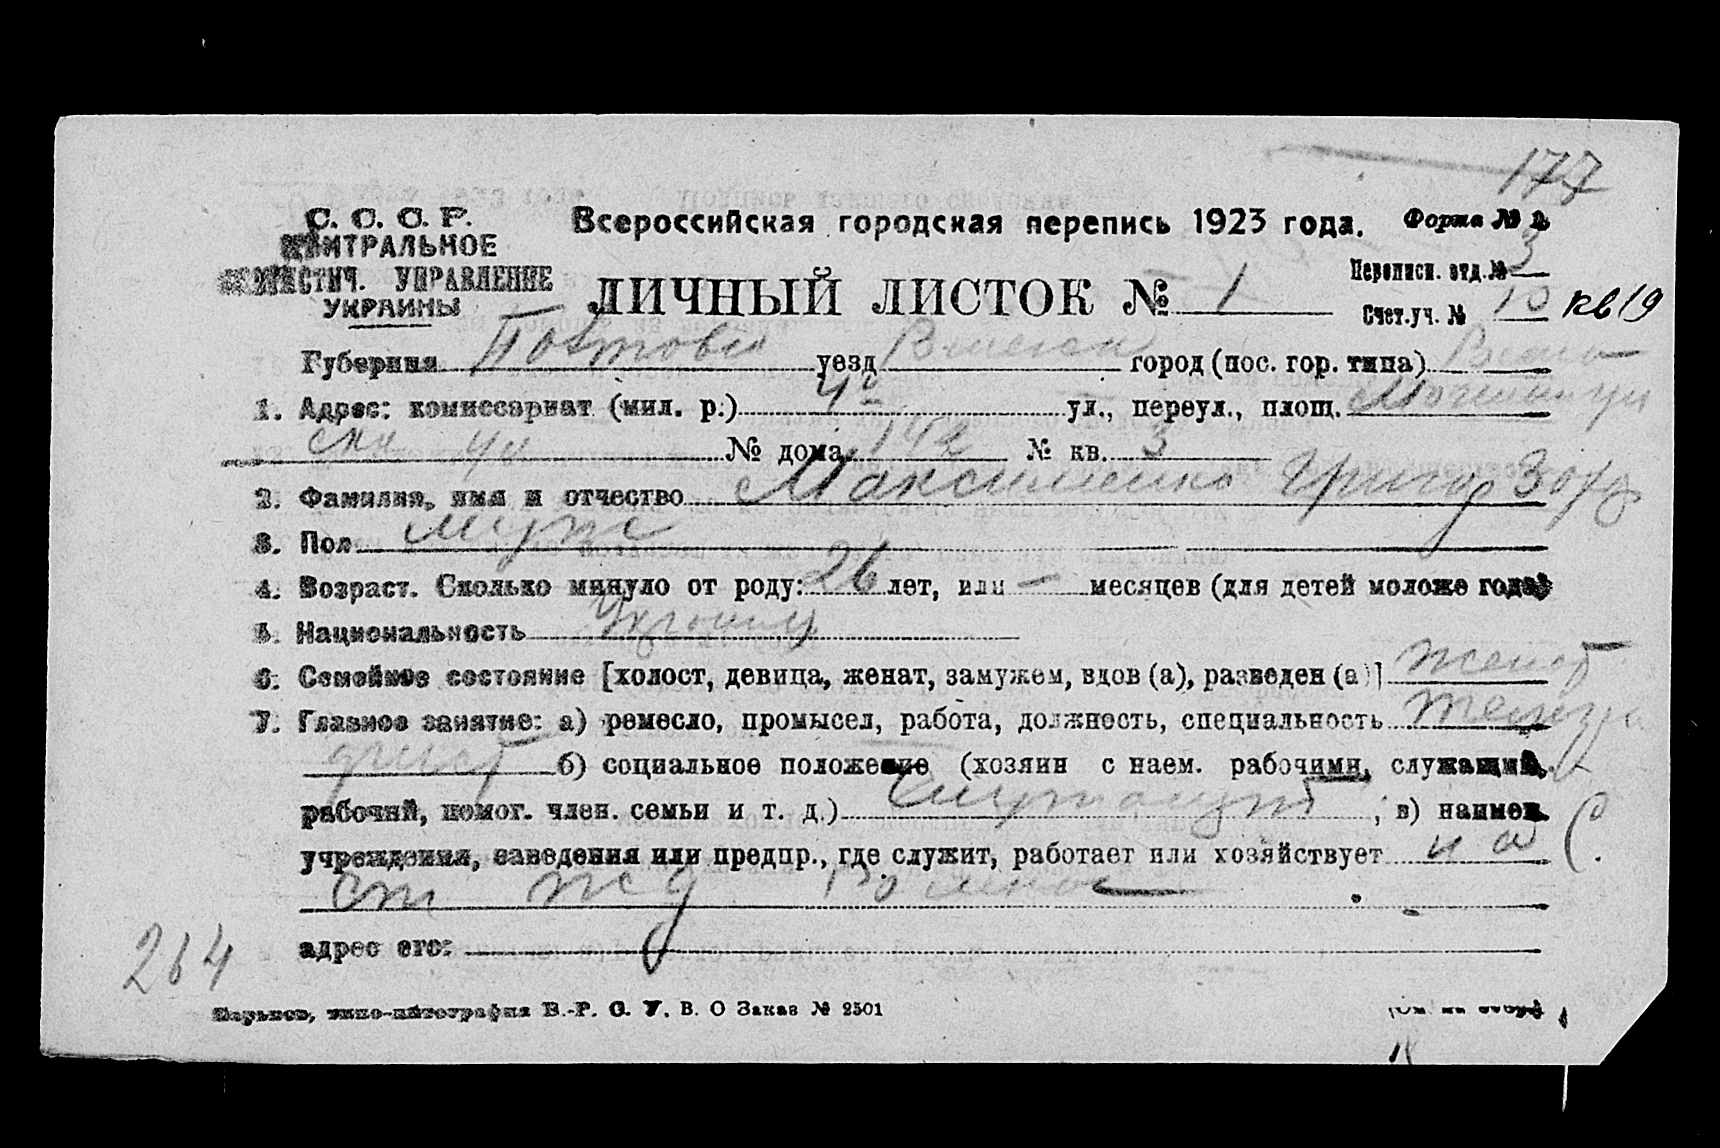 177
С. С. С. Р.
ЦЕНТРАЛЬНОЕ
СТАТИСТИЧ. УПРАВЛЕНИЕ
УКРАИНЫ
Всероссийская городская перепись 1923 года.
Форма № 2
ЛИЧНЫЙ ЛИСТОК № 1
Переписн. отд. № 3
Счет. уч. № 10 кв 19
Губерния уезд город (пос. гор. типа)
1. Адрес: комиссариат (мил. р.) 4й ул., переул., площ.
ска № дома 142 № кв. 3
2. Фамилия, имя и отчество Максименко Григор
3. Пол муж
4. Возраст. Сколько минуло от роду: 26 лет, или — месяцев (для детей моложе года)
5. Национальность Украинц
6. Семейное состояние [холост, девица, женат, замужем, вдов (а), разведен (а)] женат
7. Главное занятие: а) ремесло, промысел, работа, должность, специальность телегра
фист б) социальное положение (хозяин с наем. рабочими, служащий,
рабочий, помог. член. семьи и т. д.) Служащий ; в) наимен.
учреждения, заведения или предпр., где служит, работает или хозяйствует на
ст ж д
адрес его:
264
Харьков, типо-литография В.-Р. С. У. В. О Заказ № 2501